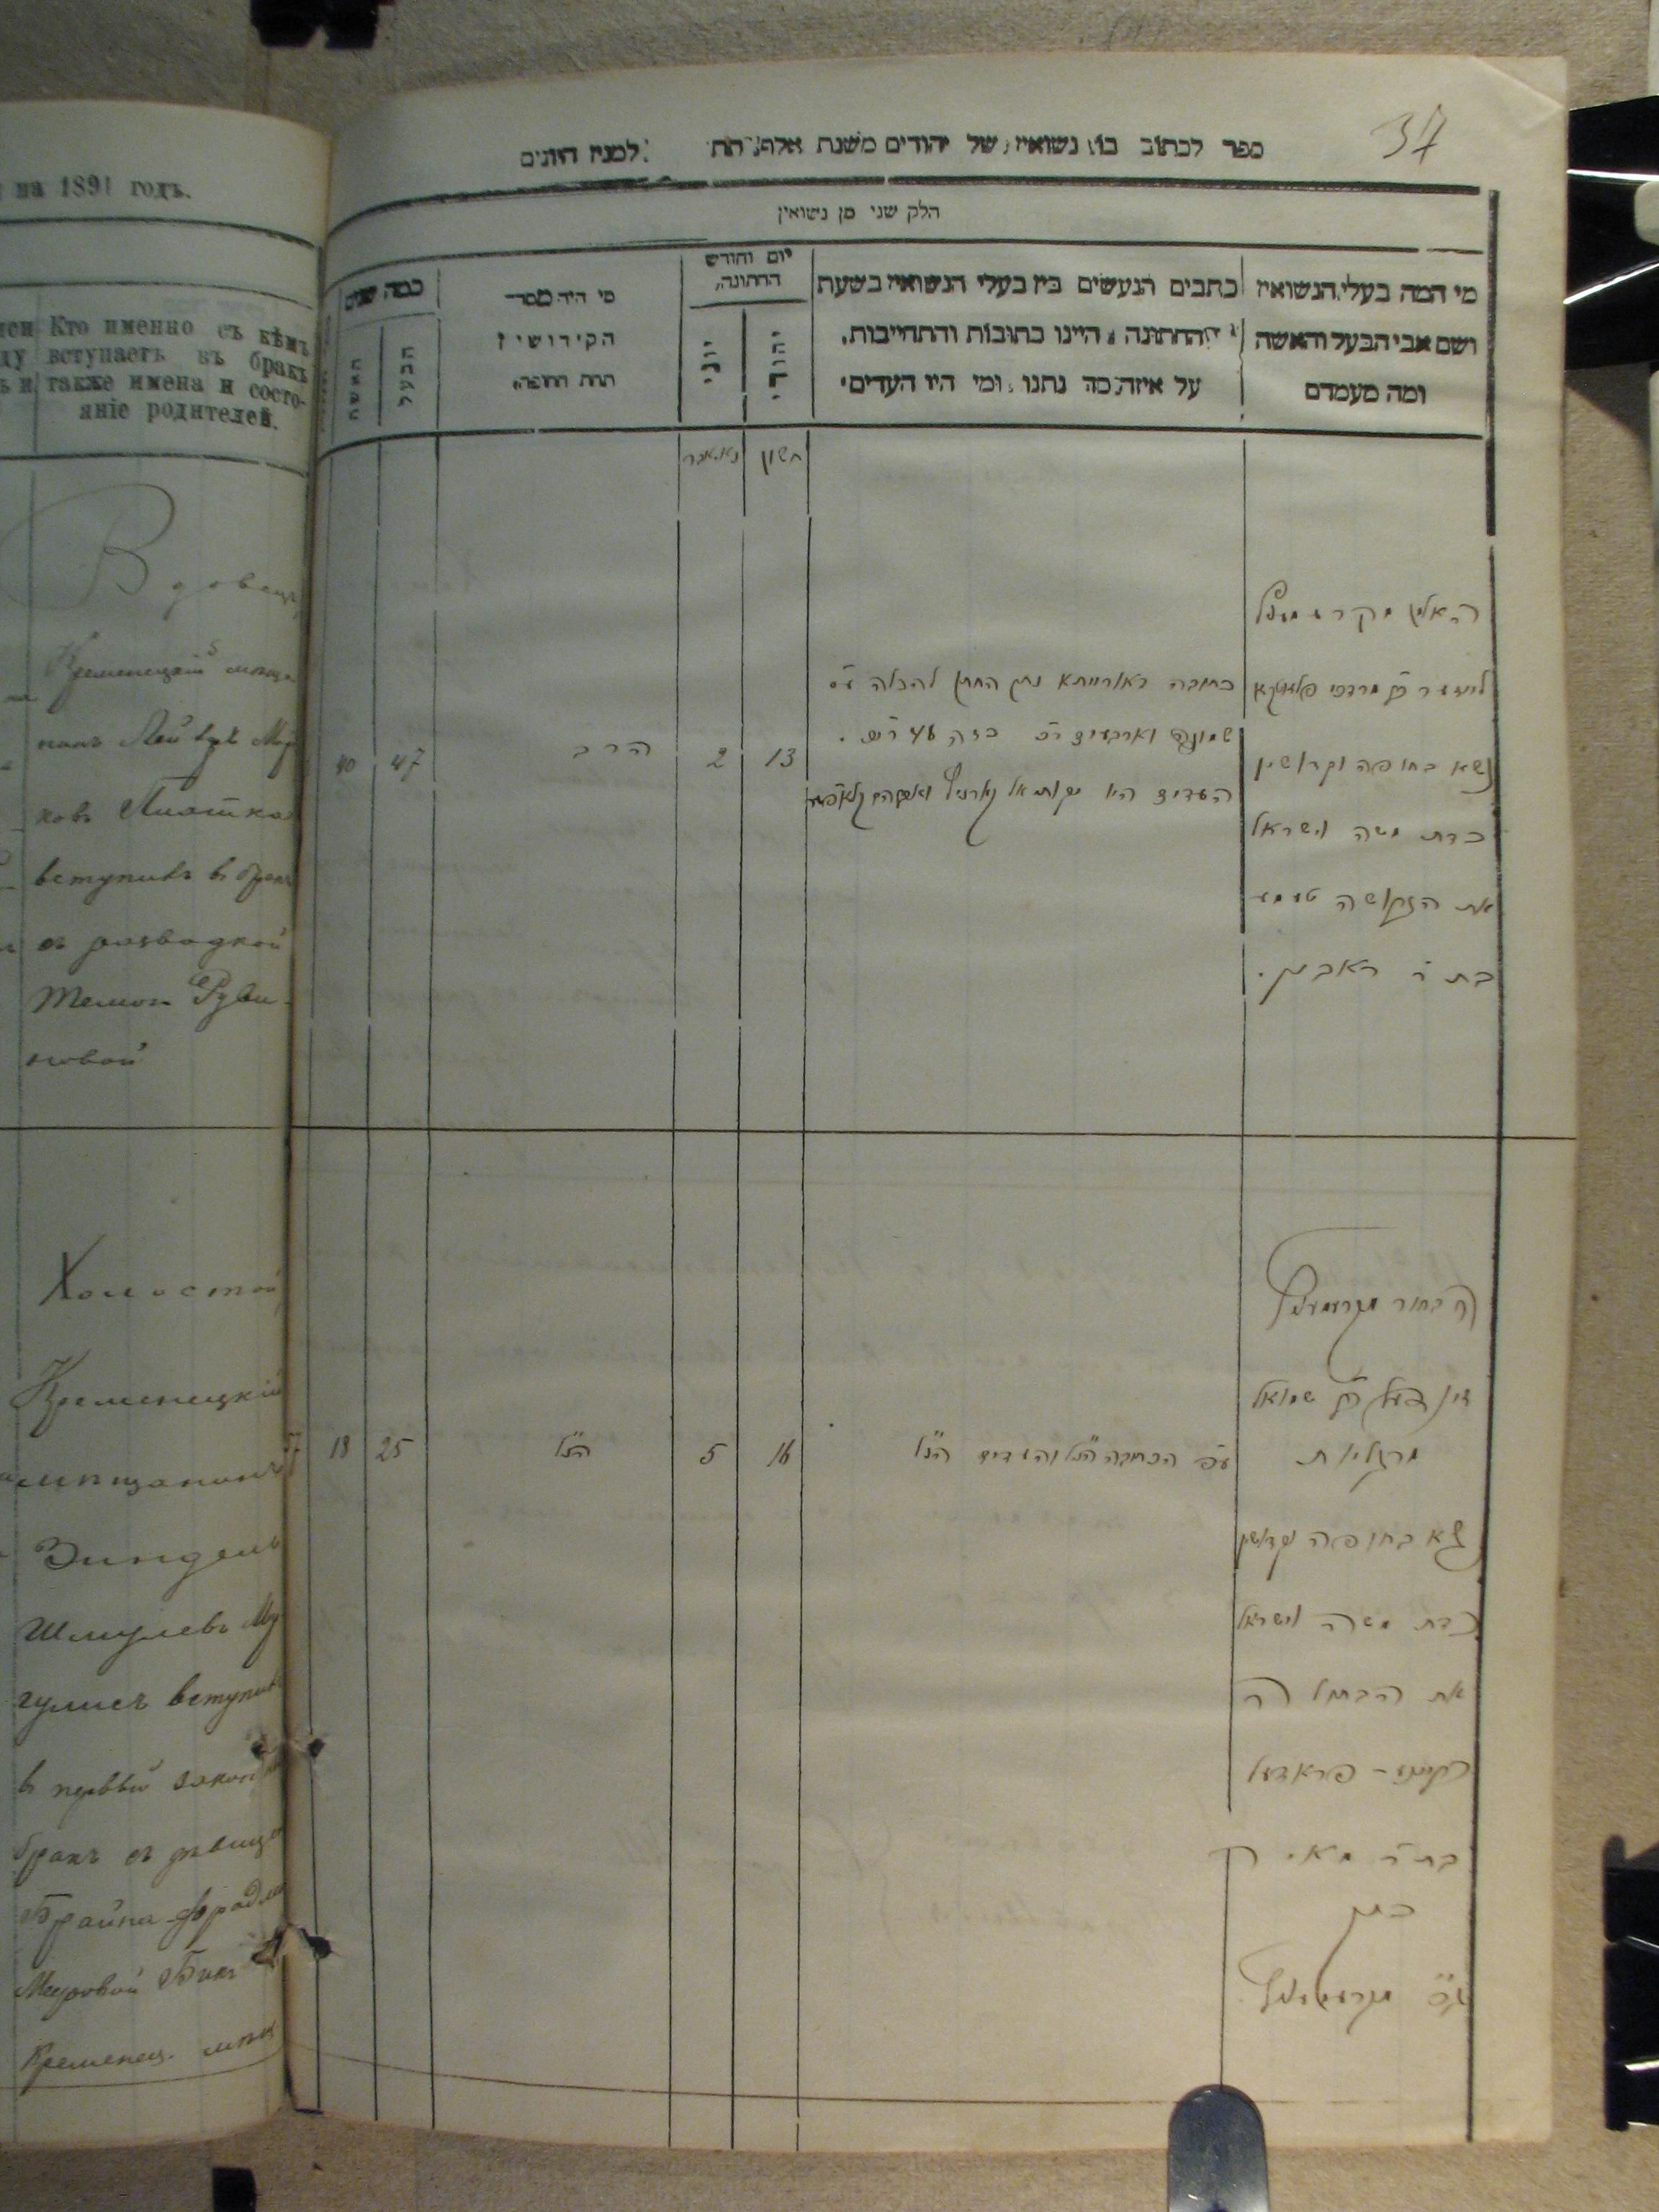 на 1891 годъ.
Кто именно съ кѣмъ
вступаетъ въ бракъ
также имена и состо-
яніе родителей.
Вдовецъ
Кременецкій мѣща
нинъ Лейзеръ Мор
ковъ
вступилъ въ бракъ
съ разводкой
Темою Руви-
новой
Холостой
Кременецкій
мѣщанинъ
Зиндель
Шмулевъ Мар
гулисъ вступилъ
въ первый законный
бракъ съ дѣвицей
Брайна-Фрадля
Мееровой Бикъ
Кременец. мѣщ
37
ספר לכתוב בו נשואין של יהודים משנת אלף תת למנין היונים
חלק שני מן נשואין
מי המה בעלי הנשואין
ושם אבי הבעל והאשה
ומה מעמדם
כתבים הנעשים בין בעלי הנשואין בשעת
החתונה, היינו כתובות והתחייבות,
על איזה כה נתנו, ומי היו העדים.
יום וחודש
החתונה,
יהודי
יוני
מי היה מסדר
הקידושין
תחת החופה,
כמה שנים
הבעל
האשה
חשון
נאוואבר
האלמן מקרעמעניץ
לייזער בן מרדכי
נשא בחופה וקדושין
כדת משה וישראל
את הגרושה טעמע
בת ר ראובן.
כתובה דאורייתא נתן החתן להכלה ע"ס
שמונה וארבעים רו"כ בזה 48 רו"כ.
העדים היו יקותיאל
13
2
הרב
47
40
הבחור מקרעמעניץ
זינדעל בן שמואל
מרגליות
נשא בחופה וקדושין
כדת משה וישראל
את הבתולה
בריינע - פראדעל
בת ר מאיר
ביק
מקרעמעניץ
ע"פ הכתובה הנ"ל והעדים הנ"ל
16
5
הנ"ל
25
18